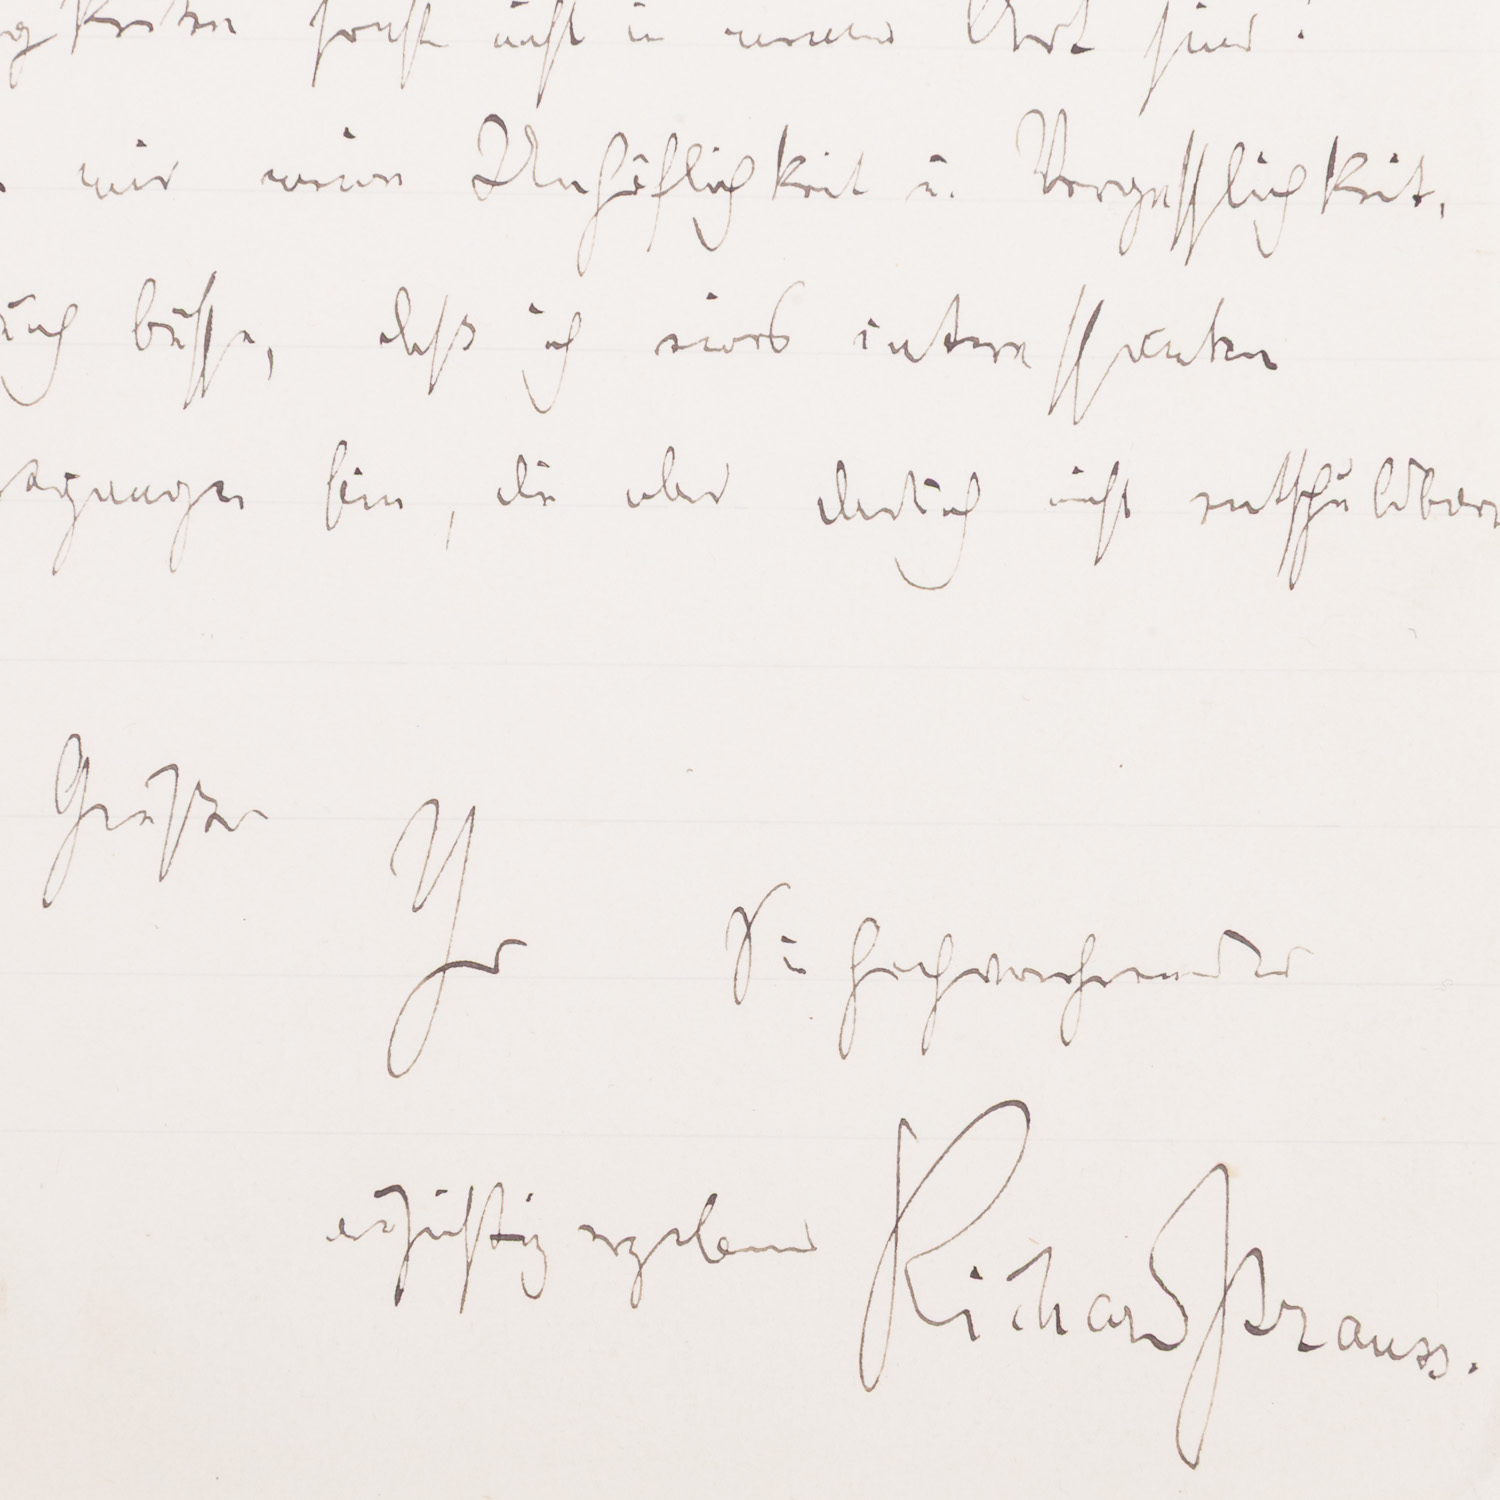 gkeiten sonst nicht in meiner Art sind!
mir meine Unhöflichkeit u. Vergesslichkeit,
auch büsse, daß ich eines interessanten
gegangen bin, die aber dadurch nicht entschuldbarer
Grüßen
Ihr Sie hochverehrender
aufrichtig ergebener Richard Strauss.